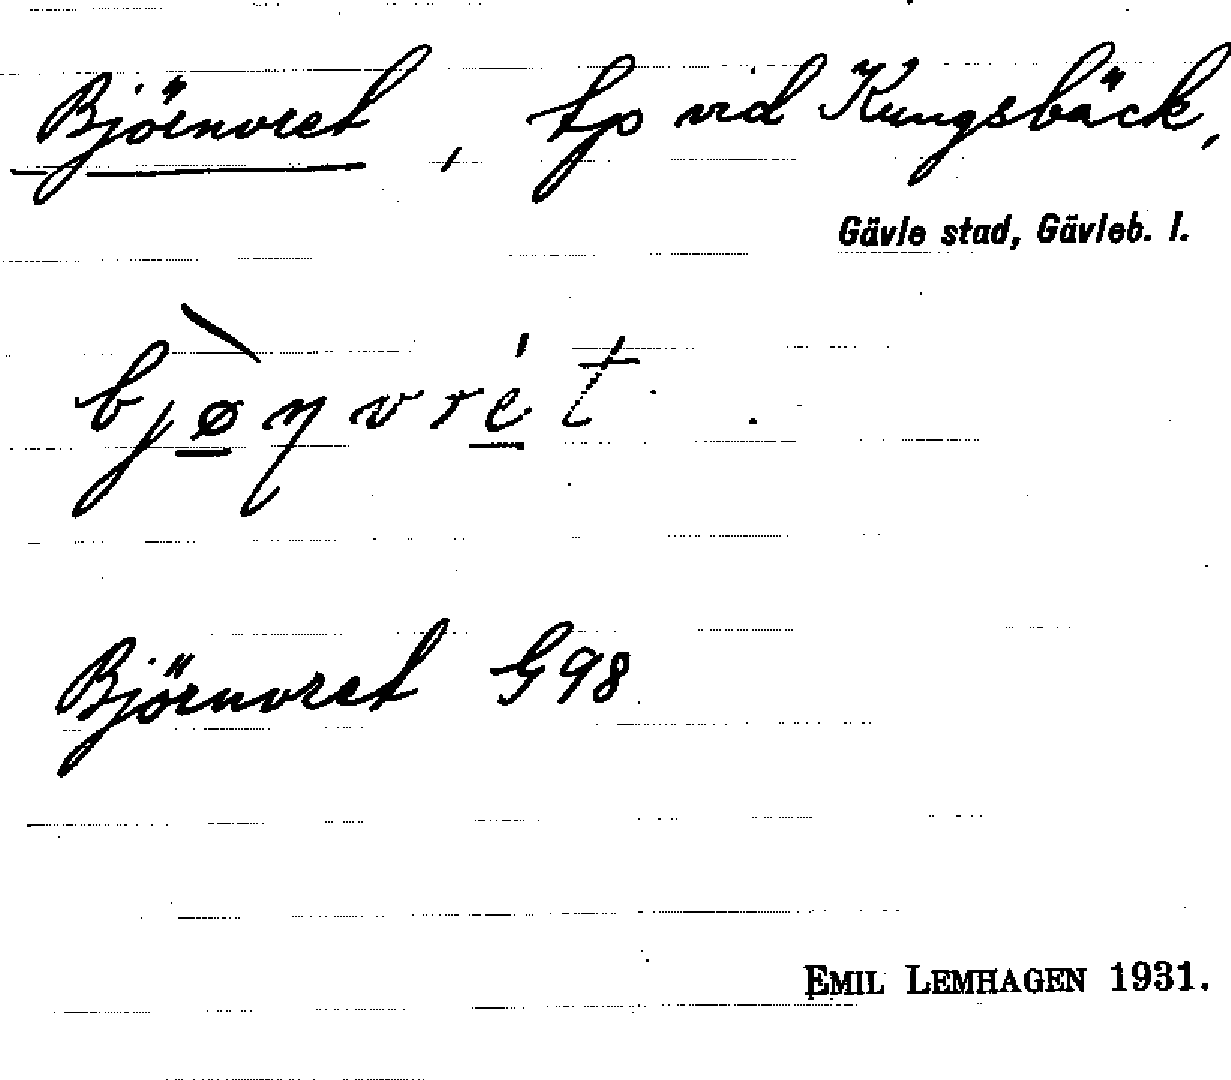 Björnvret, tp vid Kungsbäck,
Gävle stad, Gävleb. l.
bjø̲̀ɳvre̲̍t.
Björnvret G98
EMIL LEMHAGEN 1931.